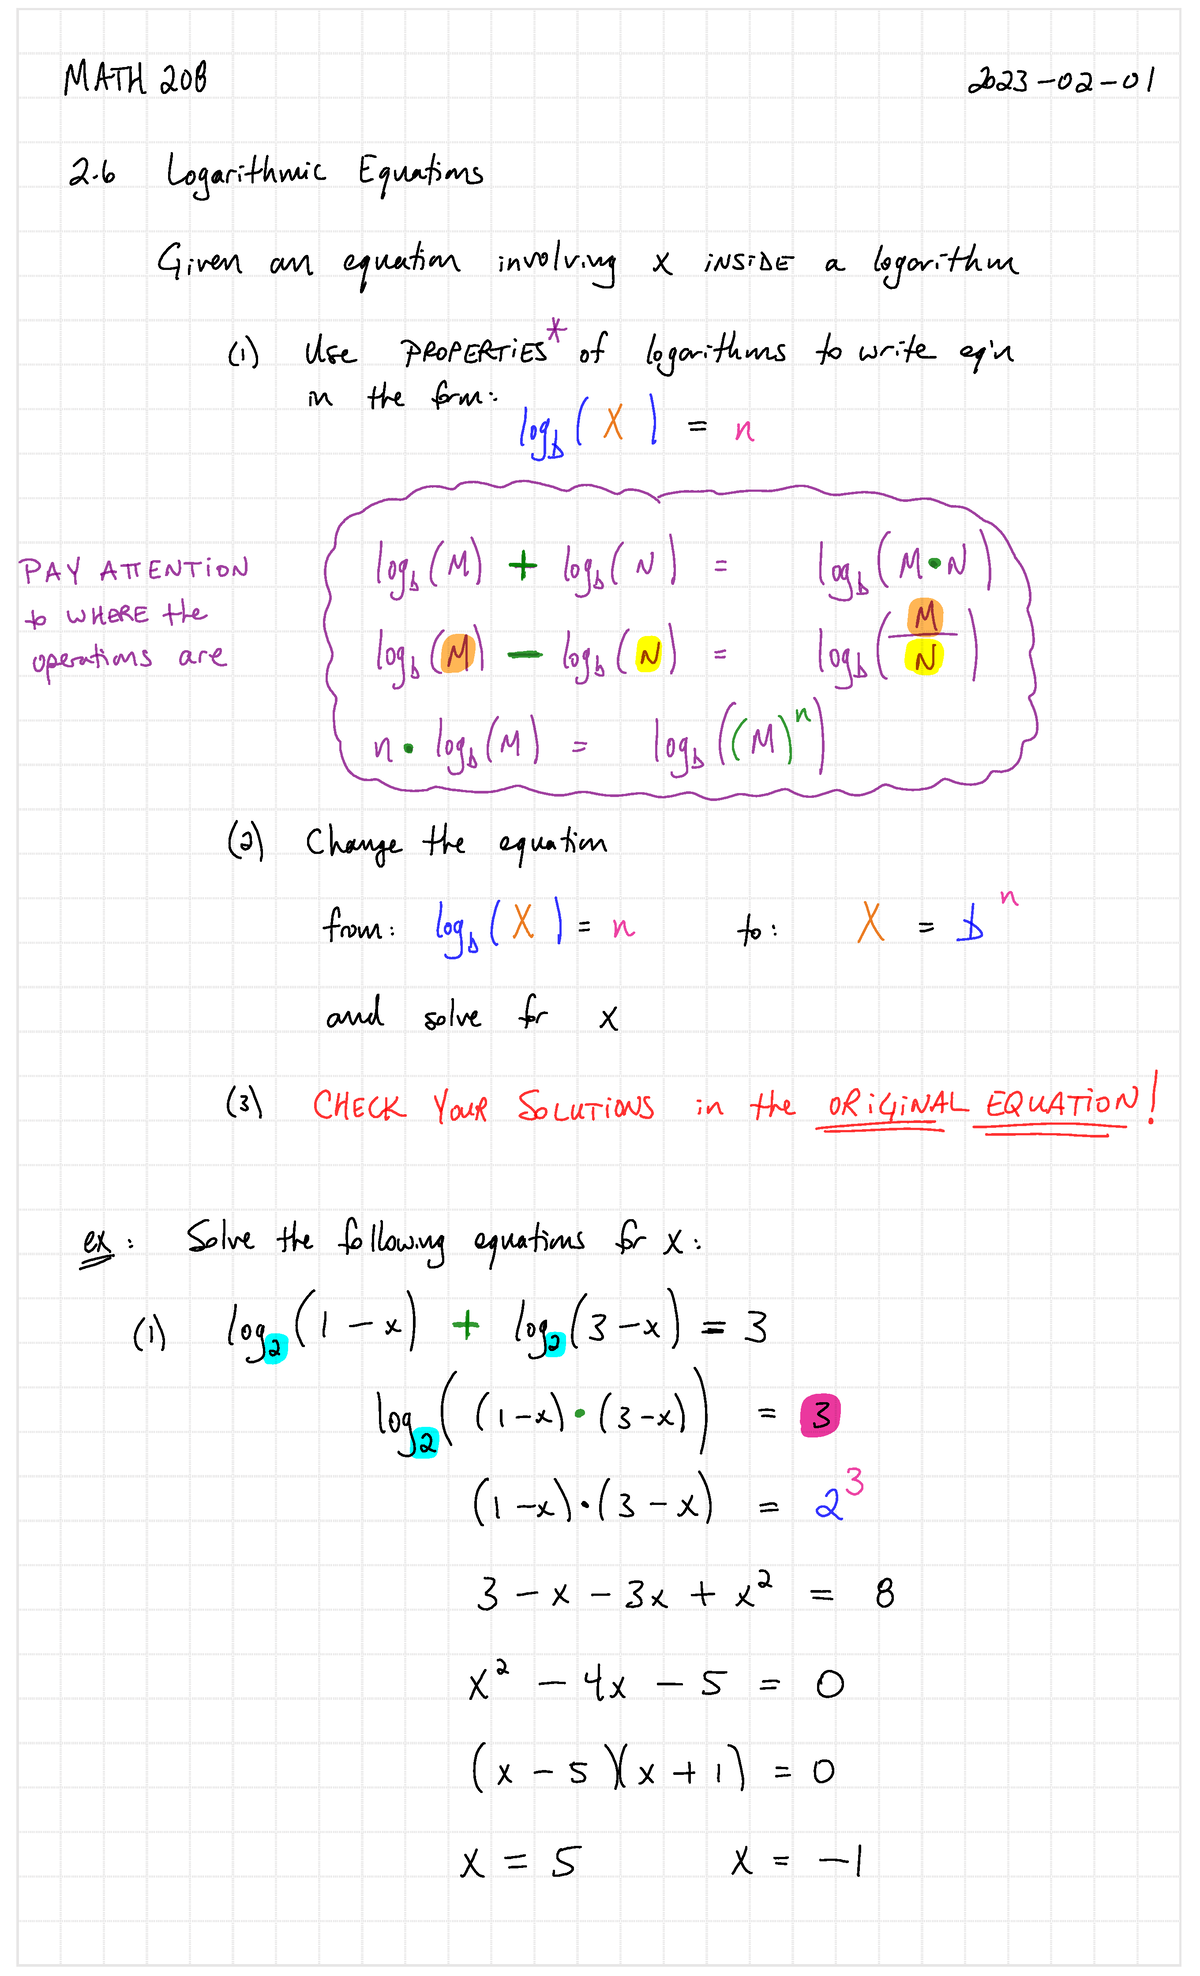 MATH 20B 2023-02-01
2.6 Logarithmic Equations
Given an equation involving x INSIDE a logarithm
(1) Use PROPERTIES* of logarithms to write eq'n
in the form:
log_b(X) = n
PAY ATTENTION
to WHERE the
operations are
log_b(M) + log_b(N) = log_b(M•N)
log_b(M) − log_b(N) = log_b(M/N)
n • log_b(M) = log_b((M)^n)
(2) Change the equation
from: log_b(X) = n to: X = b^n
and solve for x
(3) CHECK YOUR SOLUTIONS in the ORIGINAL EQUATION!
ex: Solve the following equations for x:
(1) log_2(1 − x) + log_2(3 − x) = 3
log_2((1−x)•(3−x)) = 3
(1−x)•(3−x) = 2^3
3 − x − 3x + x^2 = 8
x^2 − 4x − 5 = 0
(x − 5)(x + 1) = 0
x = 5 x = −1